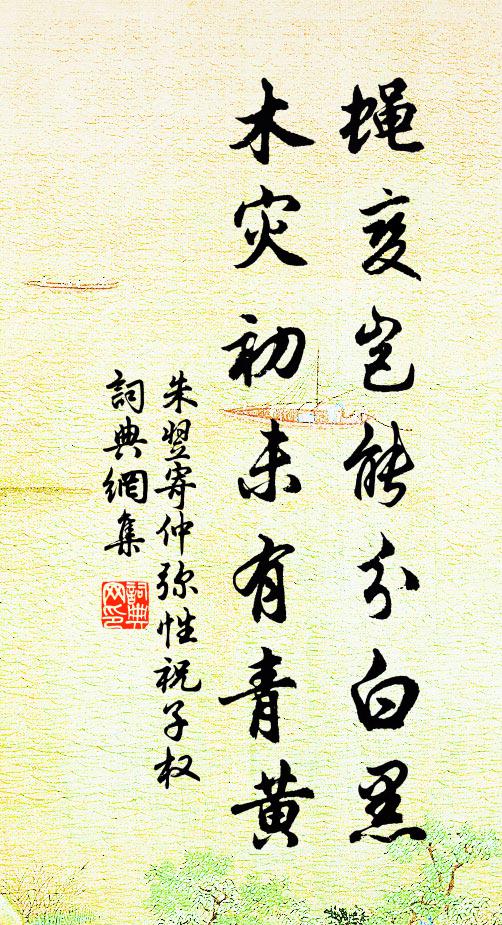 蝇变岂能分白黑
木灾初未有青黄
朱翌寄仲弥性祝子权
詞典網集
詞典网印